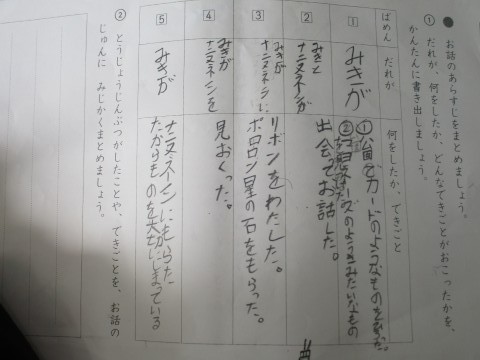 ● お話のあらすじをまとめましょう。
① だれが、何をしたか、どんなできごとがおこったかを、
かんたんに書き出しましょう。
ばめん だれが 何をしたか、できごと
1 みきが ①公園でカードのようなものを
②のようなみたいなもの
2 みきと
ナニヌネンが 出会ってお話した。
3 みきが
ナニヌネンに リボンをわたした。
ポロロン星の石をもらった。
4 みきが
ナニヌネンを 見おくった。
5 みきが ナニヌネンにもらった
たからものを大切にしまっている
② とうじょうじんぶつがしたことや、できごとを、お話の
じゅんに みじかくまとめましょう。